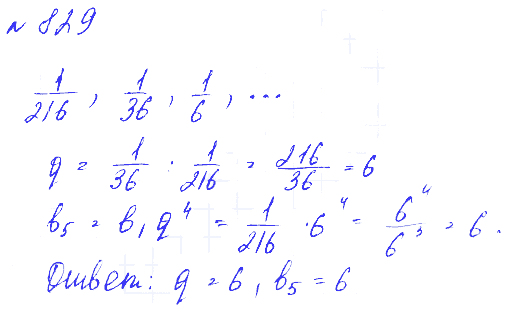 № 829
1/216, 1/36, 1/6, ...
q = 1/36 : 1/216 = 216/36 = 6
b₅ = b₁q⁴ = 1/216 · 6⁴ = 6⁴/6³ = 6.
Ответ: q = 6, b₅ = 6